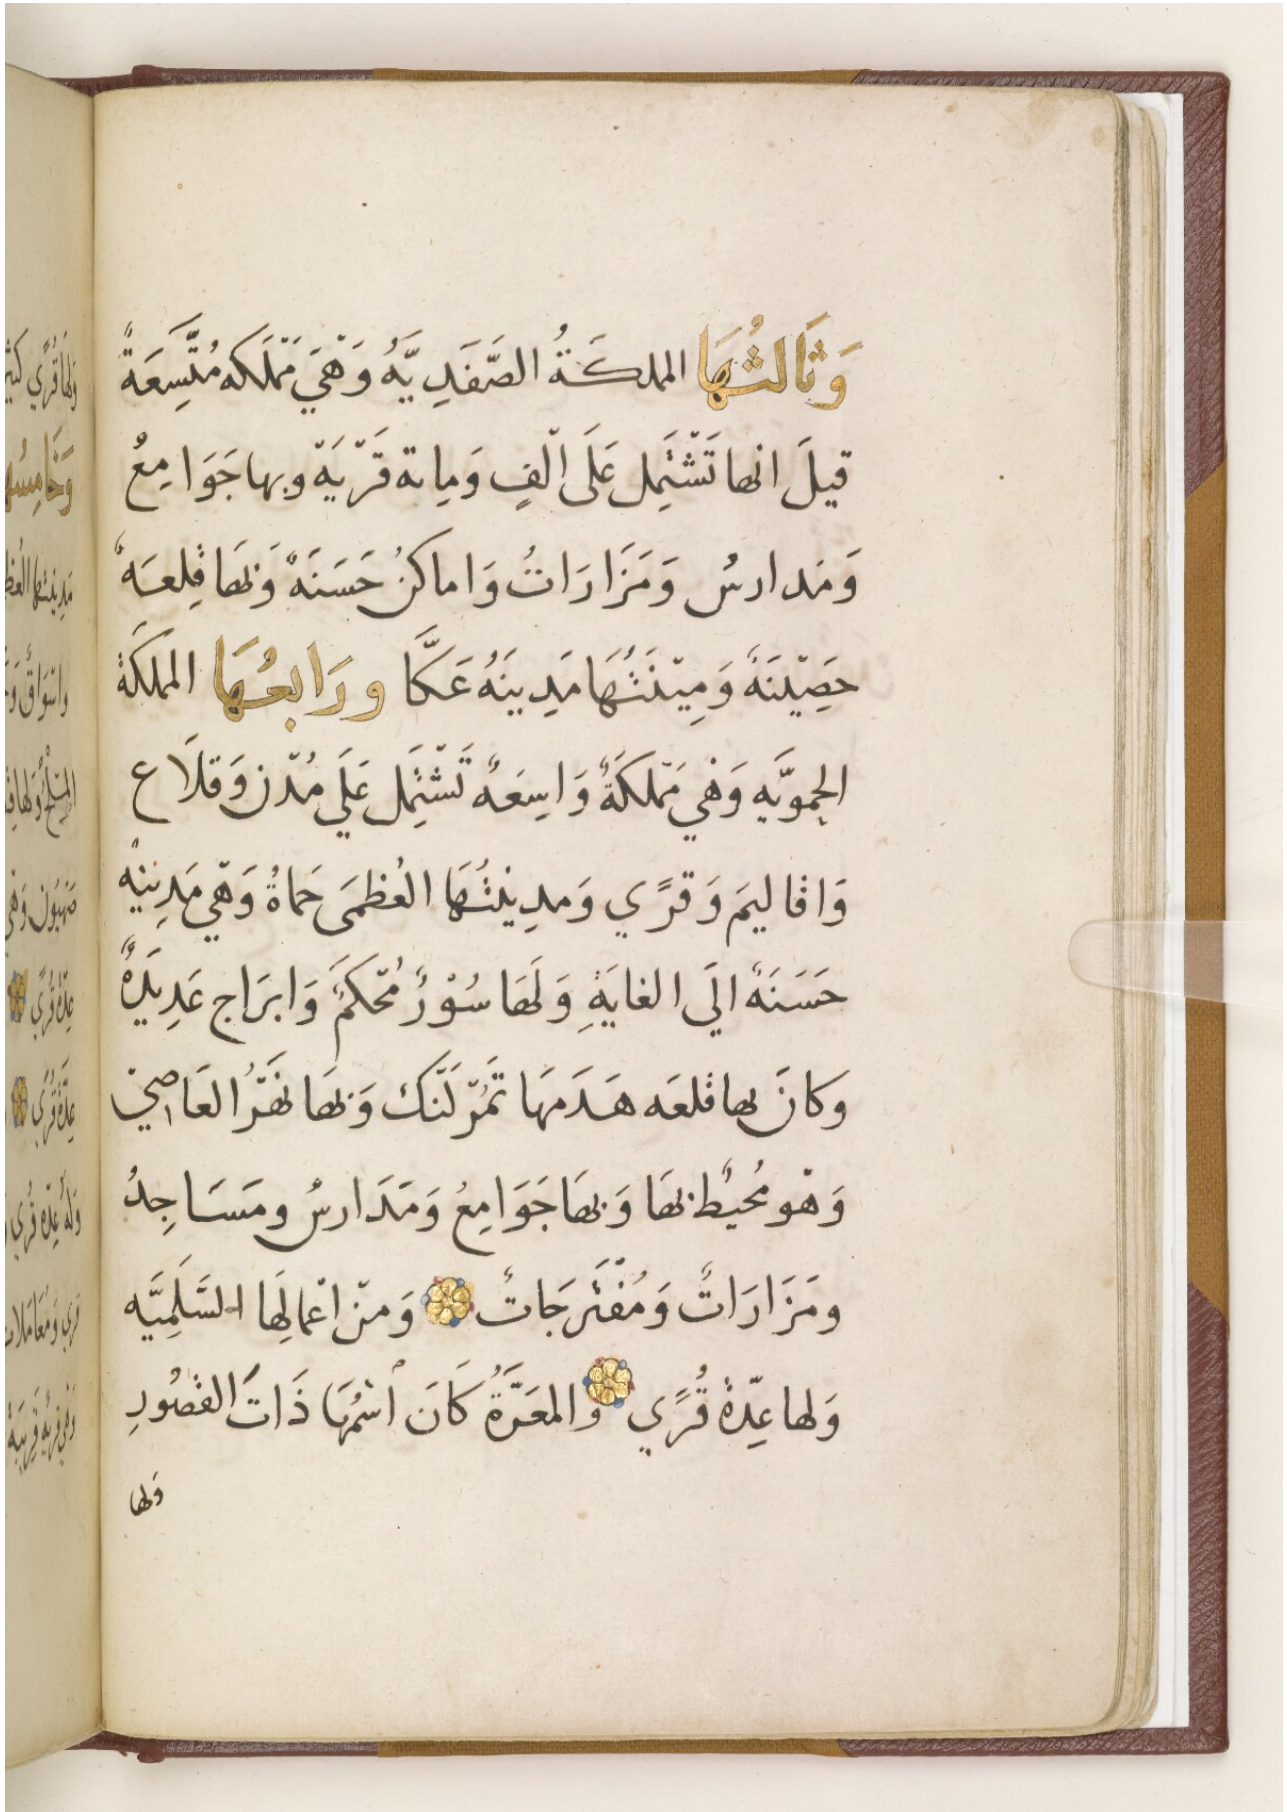 وَثَالثُهَا المملكَةُ الصَّفَدِيَّهُ وَهْيَ مَمْلَكه مُتَّسِعَةً
قيلَ انها تَشْتَمِل عَلَى الْفٍ وَماية قَرْيَة وبها جَوَامِعُ
وَمَدارسُ وَمَزَارَاتُ وَاماكنُ حَسَنَةُ وَبهَا قِلعَهُ
حَصِيْنَهُ وَمِيْنَتُهَا مَدِينَهُ عَكَّا ورَابعُهَا المملكَة
الحمويَّهِ وَهْي مَمْلكَةُ وَاسِعَهُ تَشْتَمِل عَلَي مُدْن وَقلَاع
وَاقاليمَ وَقرًي وَمدِينتُهَا العُظمَى حَماةُ وَهْي مَدِينهُ
حَسَنَهُ الَي الغايَةِ وَلَهَا سُوْرُ مُحْكمُ وَابرَاج عَدِيدَةُ
وَكانَ بها قلعَه هَدَمَهَا تَمُرْلَنْك وَبهَا نهَرُ العَاصِيْ
وَهْو مُحيْطُ بهَا وَبهَا جَوَامِعُ وَمَدَارسُ ومَسَاجِدُ
ومَزَارَاتُ وَمُفْتَرَجَاتُ وَمنْ اعْمالِهَا السَّلَمِيَّه
وَلها عِدّةُ قُرًي وَالمعَرَّةُ كَانَ اسْمُهَا ذَاتَ القصُورِ
وَلها
وَلهَا قُرًي
وَخَامِسُهَا
مَدِينتهَا
وَاسْوَاقُ
صَهْيُون وَهْي
عِدّةُ قُرًي
عِدّةُ قُرًي
وَلَهُ عِدّه قُرًي
قرًي وَمُعَامَلات
وَهْي قريَه قَرِيبَة